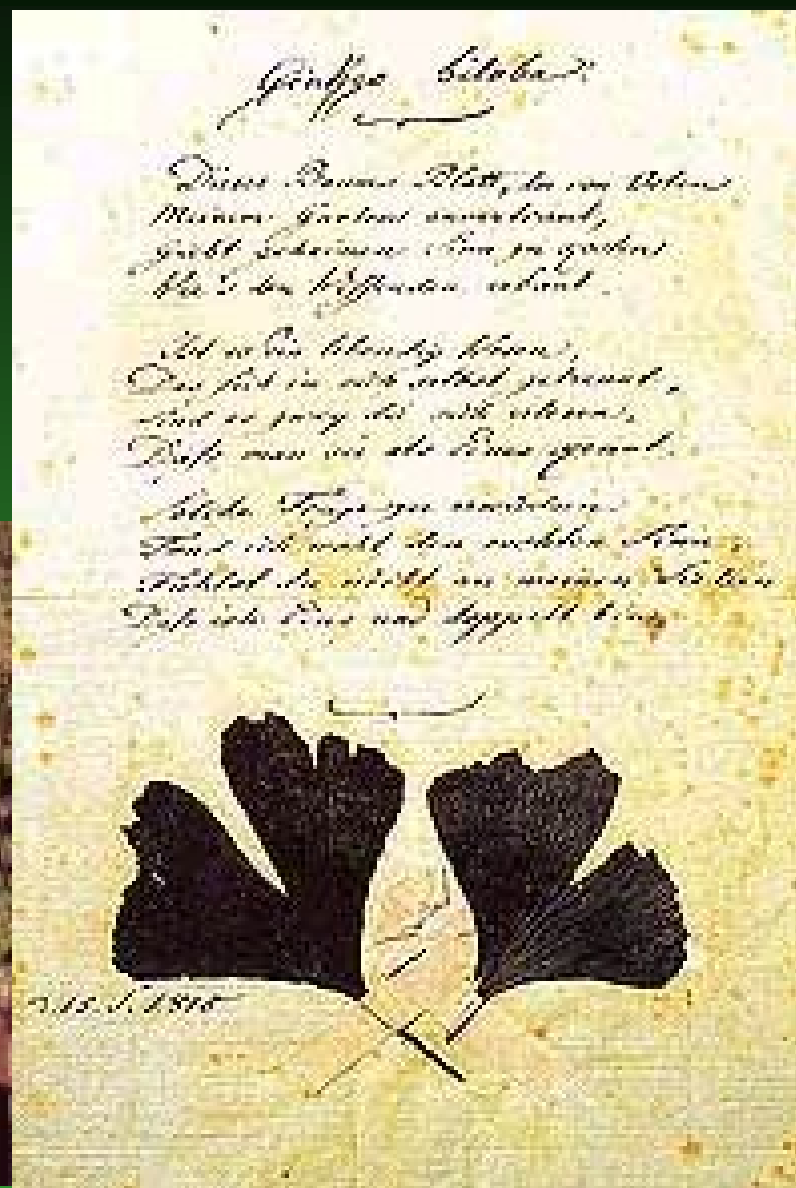 Ginkgo biloba.
Dieses Baums Blatt, der von Osten
Meinem Garten anvertraut,
Giebt geheimen Sinn zu kosten
Wie's den Wissenden erbaut.
Ist es Ein lebendig Wesen,
Das sich in sich selbst getrennt,
Sind es zwey die sich erlesen,
Daß man sie als Eines kennt.
Solche Frage zu erwiedern
Fand ich wohl den rechten Sinn;
Fühlst du nicht an meinen Liedern
Daß ich Eins und doppelt bin?
d. 15. S. 1815